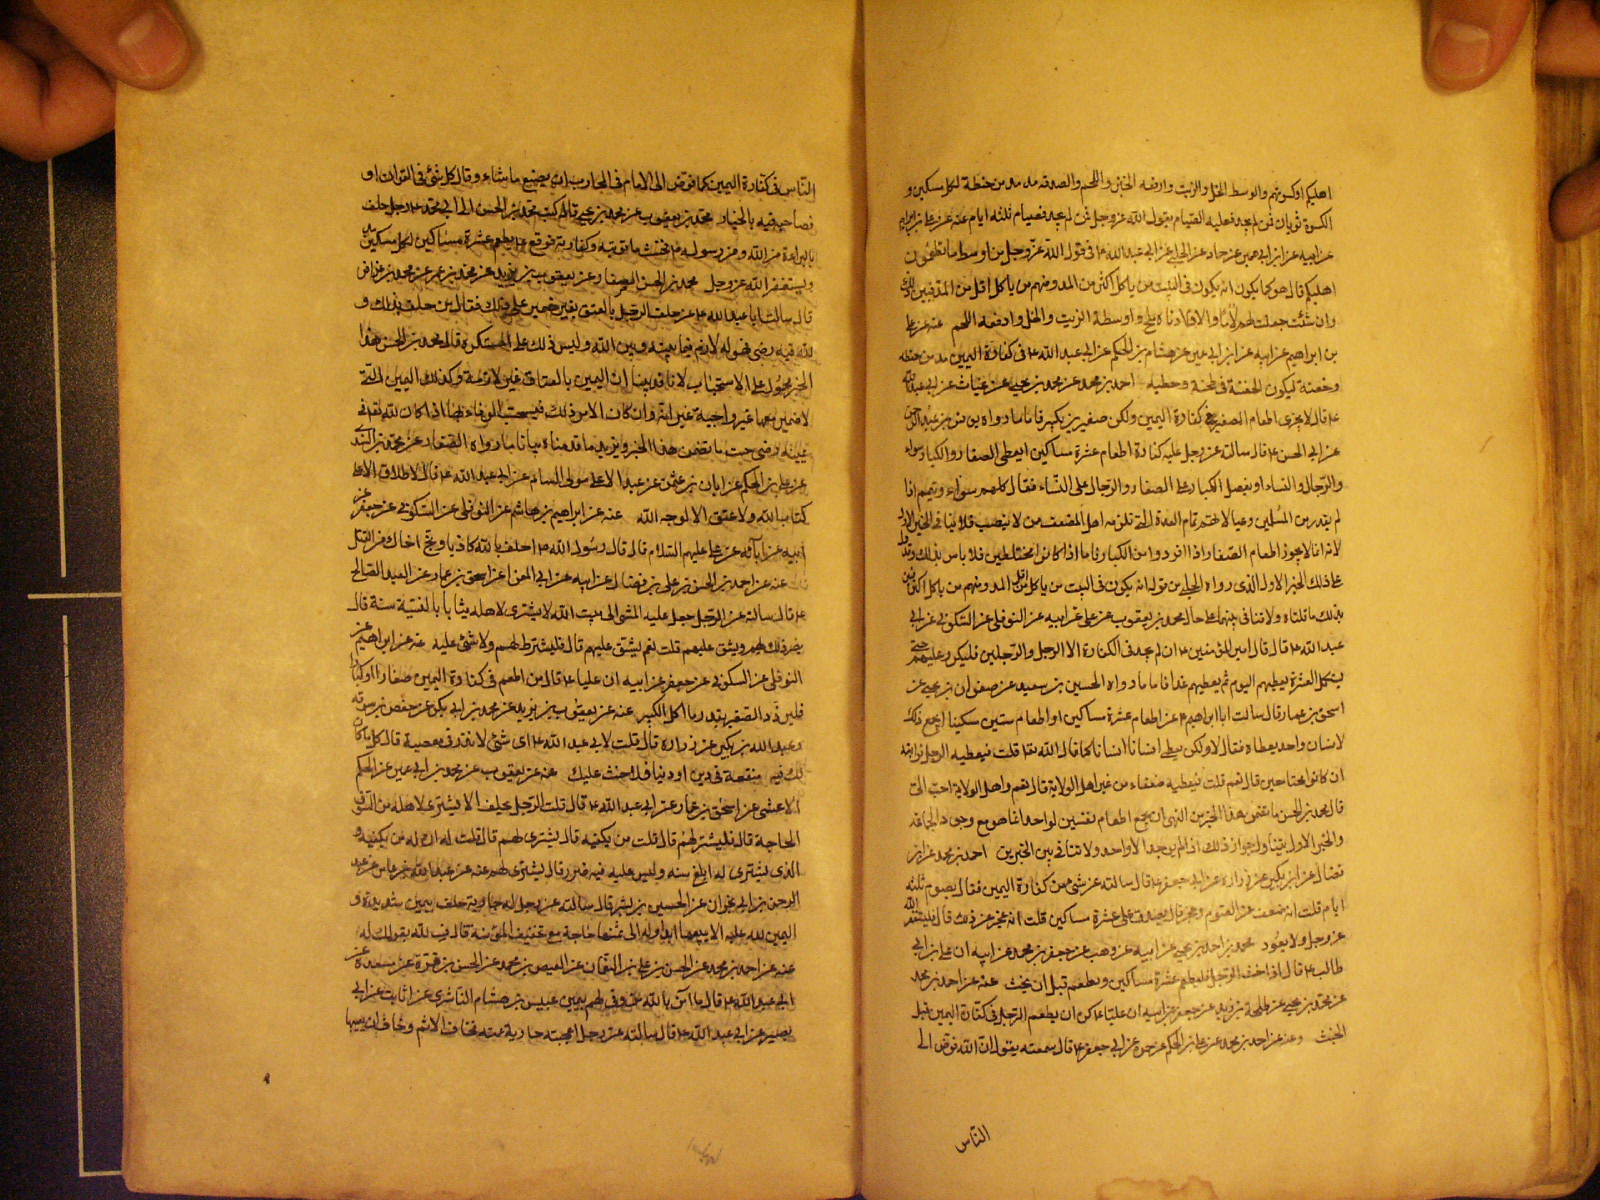 اهليكم اوكسوتهم والوسط الخل والزيت وارفعه الخبز واللحم والصدقه مد مد من حنطة لكل مسكين و
الكسوة ثوبان فمن لم يجد فعليه الصيام يقول الله عز وجل فمن لم يجد فصيام ثلثه ايام عنه عن علي بن ابراهيم
عن ابيه عن ابن ابي عمير عن حماد عن الحلبي عن ابي عبد الله ع في قول الله عز وجل من اوسط ما تطعمون
اهليكم قال هو كما يكون انه يكون في البيت من ياكل اكثر من المد ومنهم من ياكل اقل من المد فبين ذلك
وان شئت جعلت لهم ادما والادم ادناه ملح واوسطه الزيت والخل وارفعه اللحم عنه عن علي
بن ابراهيم عن ابيه عن ابن ابي عمير عن هشام بن الحكم عن ابي عبد الله ع في كفارة اليمين مد من حنطه
وحفنة ليكون الحفنة في طحنه وحطبه احمد بن محمد عن محمد بن يحيى عن غياث عن ابي عبد الله
ع قال لا يجزى اطعام الصغير في كفارة اليمين ولكن صغيرين بكبير فاما ما رواه يونس بن عبد الرحمن
عن ابي الحسن ع قال سالته عن رجل عليه كفارة اطعام عشرة مساكين ايعطى الصغار والكبار سواء
والرجال والنساء او يفضل الكبار على الصغار والرجال على النساء فقال كلهم سواء ويتمم اذا
لم يقدر من المسلمين وعيالاتهم تمام العدة التي تلزمه اهل الضعف ممن لا ينصب فلا ينافى الخبر الاول
لانه انما لا يجوز اطعام الصغار اذا افردوا من الكبار فاما اذا كانوا مختلطين فلا باس بذلك وقد دل
على ذلك الخبر الاول الذى رواه الحلبي من قوله انه يكون في البيت من ياكل اقل من المد ومنهم من ياكل اكثر فبين
بذلك ما قلناه ولا تنافى بينهما على حال محمد بن يعقوب عن علي عن ابيه عن النوفلي عن السكوني عن ابي
عبد الله ع قال قال امير المؤمنين ع ان لم يجد في الكفارة الا الرجل والرجلين فليكرر عليهم حتى
يستكمل العشرة يعطيهم اليوم ثم يعطيهم غدا فاما ما رواه الحسين بن سعيد عن صفوان بن يحيى عن
اسحق بن عمار قال سالت ابا ابراهيم ع عن اطعام عشرة مساكين او اطعام ستين مسكينا ايجمع ذلك
لانسان واحد يعطاه فقال لا ولكن يعطى انسانا انسانا كما قال الله تعا قلت فيعطيه الرجل قرابته
ان كانوا محتاجين قال نعم قلت فيعطيه ضعفاء من غير اهل الولاية قال نعم واهل الولاية احب الى
قال محمد بن الحسن ما تضمن هذا الخبر من النهى ان يجمع اطعام نفسين لواحد انما هو مع وجود الجماعة
والخبر الاول يتناول جواز ذلك اذا لم يجد الا واحد ولا تنافى بين الخبرين احمد بن محمد عن ابن
فضال عن ابن بكير عن زراره عن ابي جعفر ع قال سالته عن شئ من كفارة اليمين فقال يصوم ثلثه
ايام قلت انه ضعف عن الصوم وعجز قال يتصدق على عشرة مساكين قلت انه عجز عن ذلك قال فليستغفر الله
عز وجل ولا يعود محمد بن احمد بن يحيى عن ابيه عن وهب عن جعفر بن محمد عن ابيه ان علي بن ابي
طالب ع قال اذا حنث الرجل فليطعم عشرة مساكين ويطعم قبل ان يحنث عنه عن احمد بن محمد
عن محمد بن يحيى عن طلحة بن زيد عن جعفر عن ابيه ان عليا ع كره ان يطعم الرجل في كفارة اليمين قبل
الحنث وعنه عن احمد بن محمد عن علي بن الحكم عن حمزة عن ابي جعفر ع قال سمعته يقول ان الله فوض الى
الناس
الناس في كفارة اليمين كما فوض الى الامام في المحارب ان يصنع ما شاء وقال كل شئ في القران او
فصاحبه فيه بالخيار محمد بن يعقوب عن محمد بن يحيى قال كتب محمد بن الحسن الى ابي محمد ع رجل حلف
بالبراءة من الله ومن رسوله ص فحنث ما توبته وكفارته فوقع ع يطعم عشرة مساكين لكل مسكين مد
ويستغفر الله عز وجل محمد بن الحسن الصفار عن يعقوب بن يزيد عن محمد بن عمر عن محمد بن عذافر
قال سالت ابا عبد الله ع عن حلف الرجل بالعتق بغير ضمير على ذلك فقال من حلف بذلك و
لله فيه رضى فهو له لازم فيما بينه وبين الله وليس ذلك على المستكره قال محمد بن الحسن هذا
الخبر محمول على الاستحباب لانا قد بينا ان اليمين بالعتاق غير لازمة وكذلك اليمين التي
لا ضمير معها غير واجبة غير انه وان كان الامر ذلك فيستحب الوفاء بها اذا كان لله تعا في
يمينه رضى حسب ما تضمن هذا الخبر ويزيد ما قدمناه بيانا ما رواه الصفار عن محمد بن السندى
عن علي بن الحكم عن ابان بن عثمن عن عبد الاعلى مولى ال سام عن ابي عبد الله ع قال لا طلاق الا على
كتاب الله ولا عتق الا لوجه الله عنه عن ابراهيم بن هاشم عن النوفلي عن السكوني عن جعفر عن
ابيه عن ابائه عن علي عليهم السلام قال قال رسول الله ص احلف بالله كاذبا ونج اخاك من القتل
عنه عن احمد بن الحسن بن علي بن فضال عن ابيه عن ابي المعزا عن اسحق بن عمار عن العبد الصالح
ع قال سالته عن الرجل جعل عليه المشى الى بيت الله لا يشترى لاهله ثيابا بالنسية سنة قال
يضر ذلك بهم ويشق عليهم قلت نعم يشق عليهم قال فليشتر لهم ولا شئ عليه عنه عن ابراهيم عن
النوفلي عن السكوني عن جعفر عن ابيه ان عليا ع قال من اطعم في كفارة اليمين صغارا او كبارا
فليزود الصغير بقدر ما اكل الكبير عنه عن يعقوب بن يزيد عن محمد بن ابي بكر عن حفص بن سوقه
وعبد الله بن بكير عن زراره قال قلت لابي عبد الله ع اى شئ لا نذر في معصية قال كل ما كان
لك فيه منفعة في دين او دنيا فلا حنث عليك عنه عن يعقوب عن محمد بن ابي عمير عن الحكم
الاعشى عن اسحق بن عمار عن ابي عبد الله ع قال قلت الرجل يحلف الا يشترى لاهله من السوق
الحاجة قال فليشتر لهم قال قلت من يكفيه قال يشترى لهم قال قلت له ان له من يكفيه و
الذى يشترى له ابلغ منه وليس عليه فيه ضرر قال يشترى لهم عنه عن عبد الله بن عامر عن عبد
الرحمن بن ابي نجران عن الحسين بن بشر قال سالته عن رجل له جارية حلف بيمين شديدة و
اليمين لله عليه الا يبيعها ابدا وله الى ثمنها حاجة مع تخفيف المؤنة قال ف لله بقولك له
عنه عن احمد بن محمد عن الحسن بن علي بن النعمان عن العيص بن محمد عن الحسن بن قرة عن مسعدة عن
ابي عبد الله ع قال ما آمن بالله من وفى لهم بيمين عبيس بن هشام الناشرى عن ثابت عن ابي
بصير عن ابي عبد الله ع قال سالته عن رجل اعجبته جارية عمته فخاف الاثم وخاف ان يصيبها